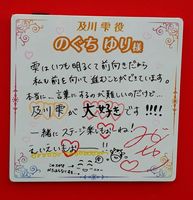 及川 雫 役
のぐち ゆり 様
雫はいつも明るくて前向きだから
私も前を向いて進むことができています。
本当に一言にするのが難しいのだけど…
及川雫が大好きです!!!!
一緒にステージ楽しもおね!